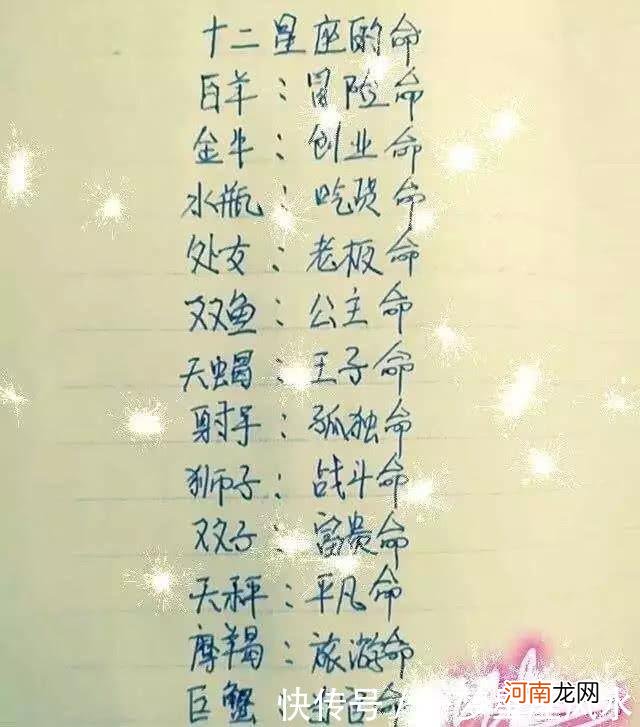 十二星座的命
白羊：冒险命
金牛：创业命
水瓶：吃货命
处女：老板命
双鱼：公主命
天蝎：王子命
射手：孤独命
狮子：战斗命
双子：富贵命
天秤：平凡命
摩羯：旅游命
巨蟹 命
快传号
河南龙网